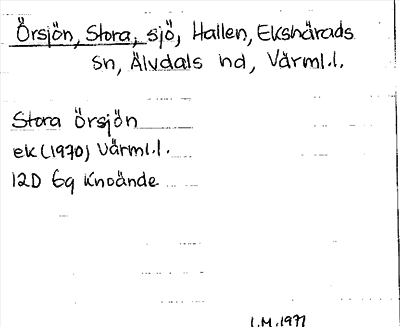 Örsjön, Stora, sjö, Hallen, Ekshärads
sn, Älvdals hd, Värml.l.
Stora Örsjön
ek (1970) Värml.l.
12D 6g Knoände
I.M. 1971